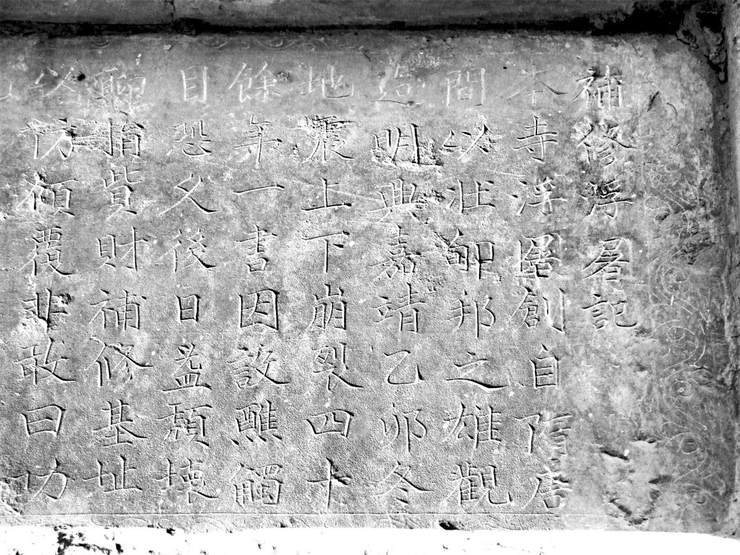 補修浮啚記
本寺浮圖創自隋唐
間以壯郇邦之雄觀
迨明興嘉靖乙卯冬
地震上下崩裂四十
餘年一書因設醮觸
目恐久後日益頹壞
聊捐貲財補修基址
以防傾覆非敢曰功